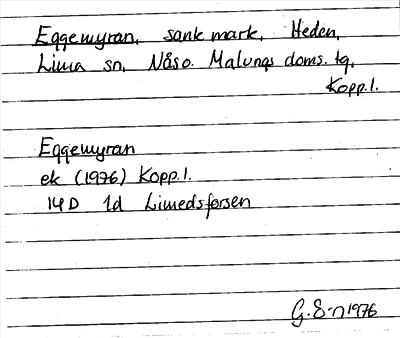 Eggemyran, sank mark, Heden,
Lima sn, Nåso. Malungs doms. tg,
Kopp.l.
Eggemyran
ek (1976) Kopp.l.
14D 1d Limedsforsen
G.S-n 1976